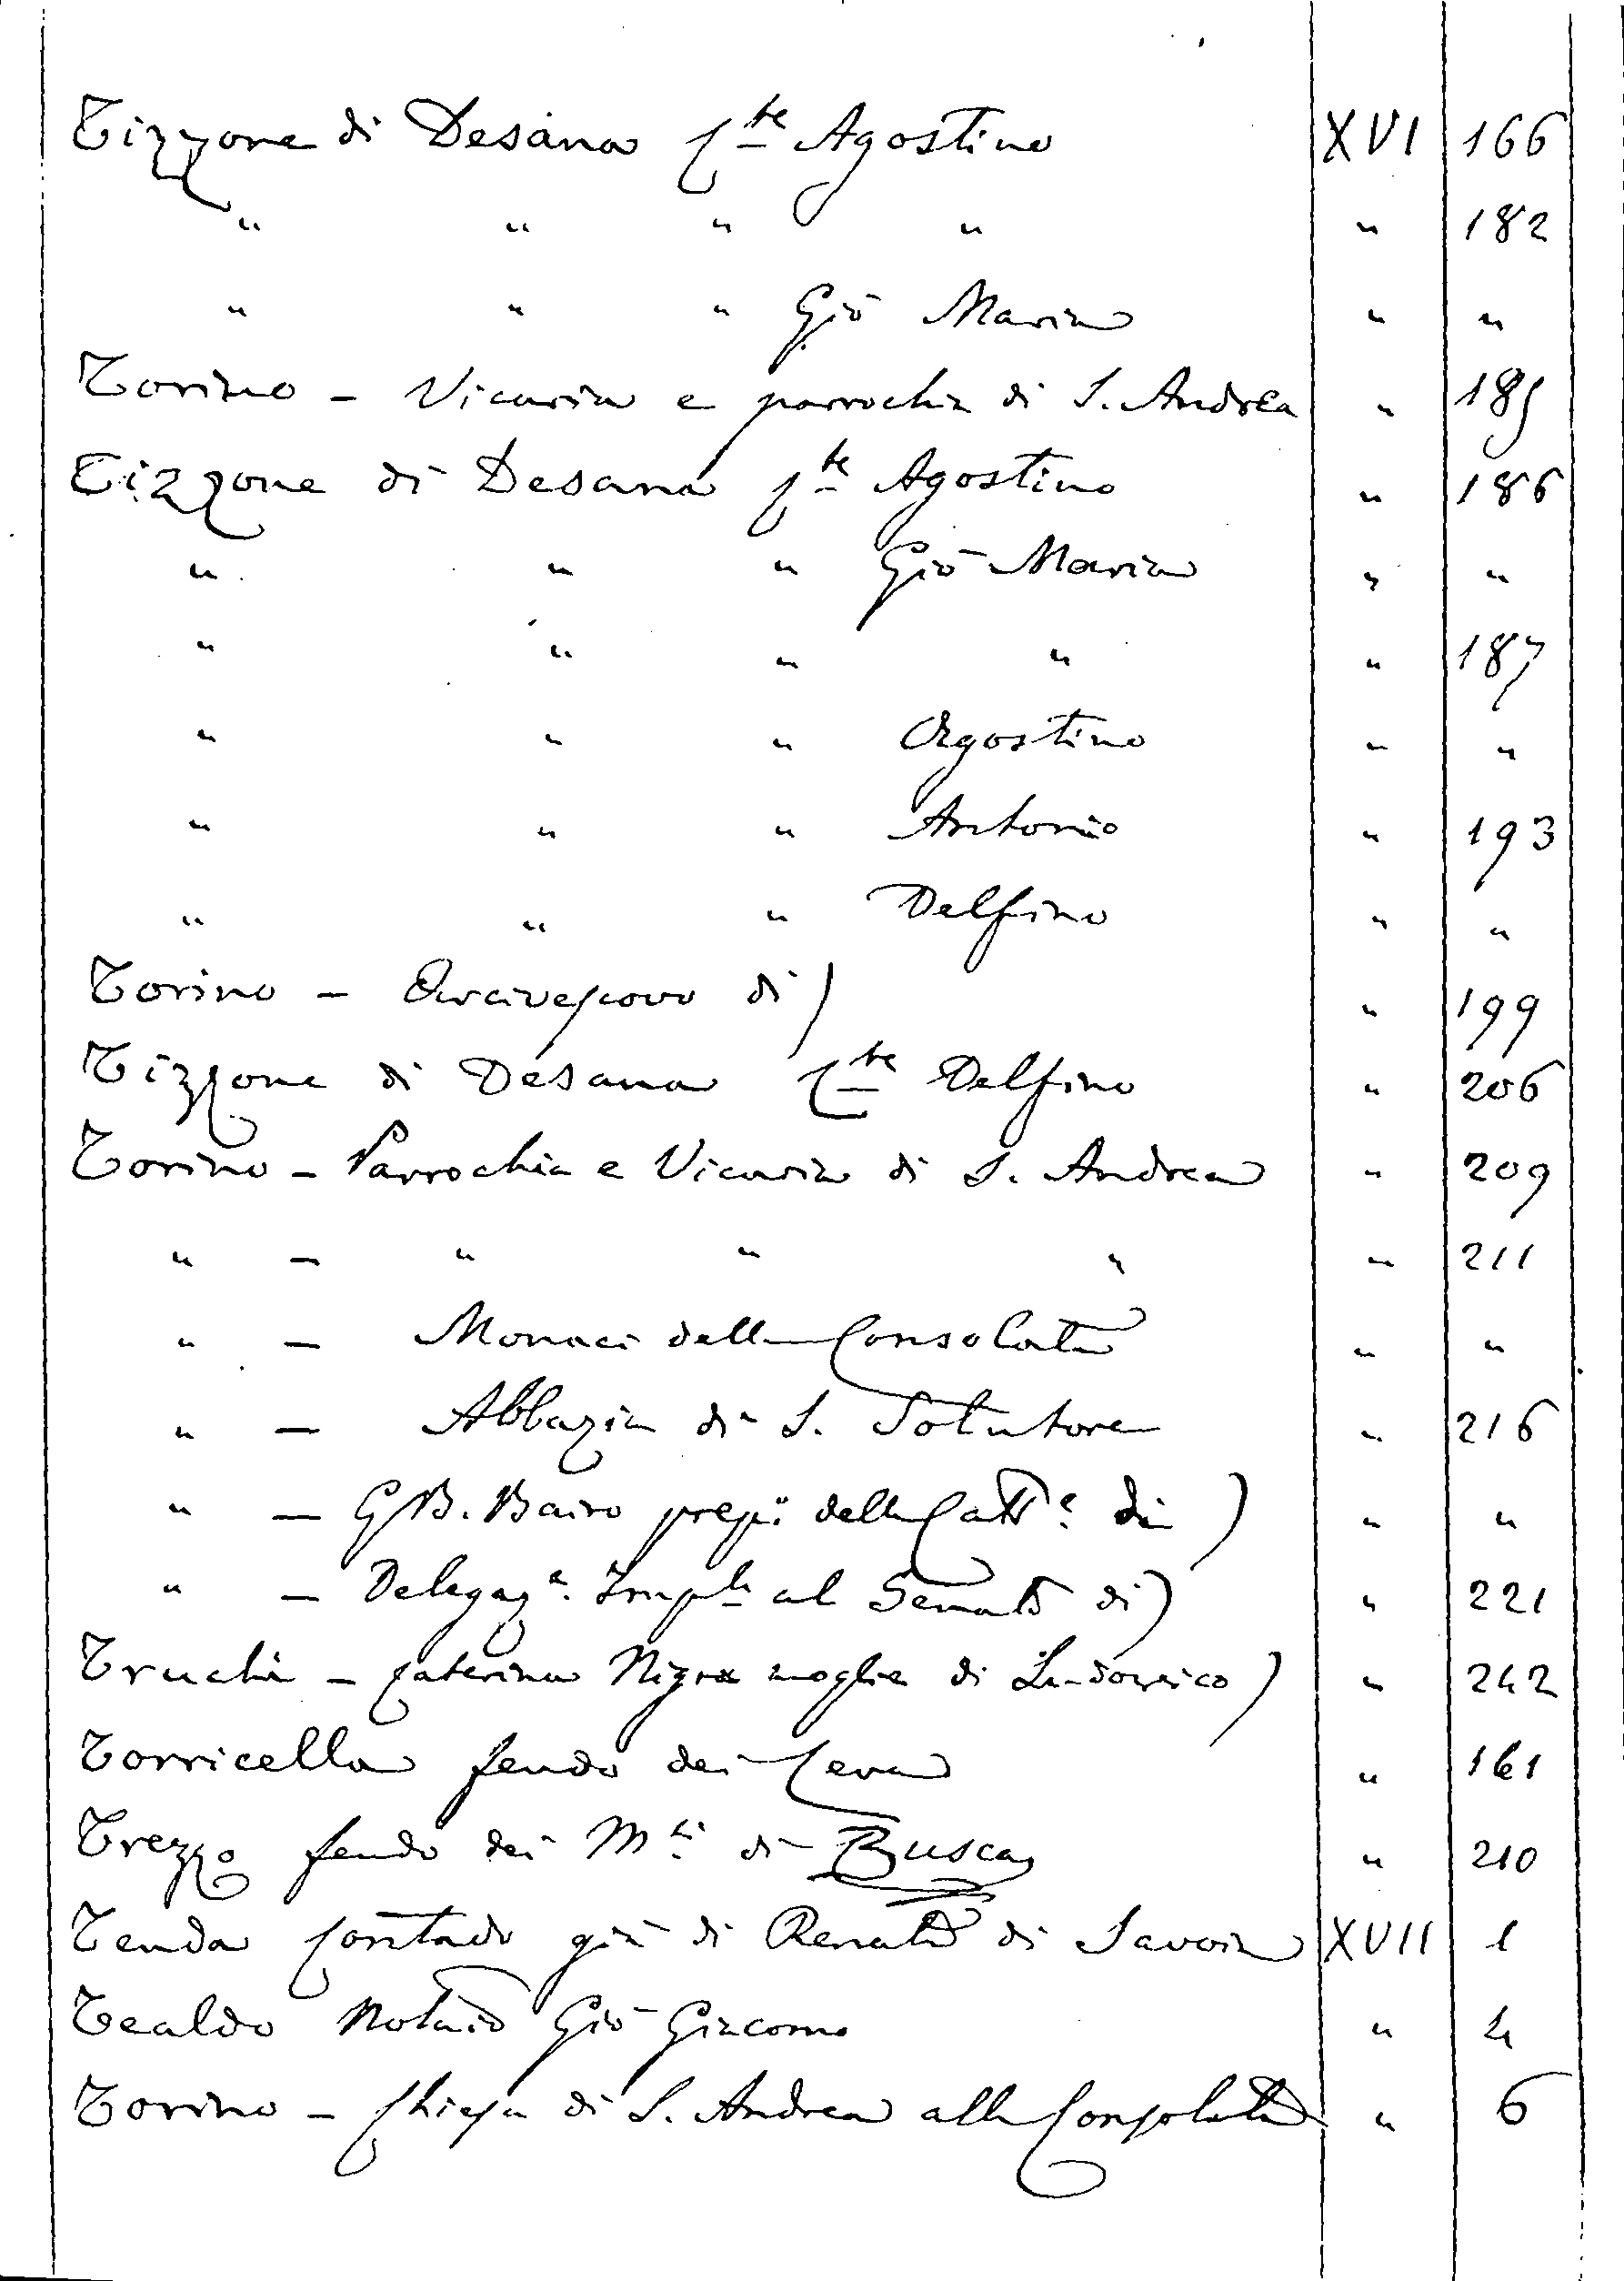 Tizzone di Desana Cte Agostino XVI 166
" " " " " 182
" " " Gio Maria " "
Torino - Vicaria e parrochia di S. Andrea " 185
Tizzone di Desana Cte Agostino " 186
" " " Gio Maria " "
" " " " " 187
" " " Agostino " "
" " " Antonio " 193
" " " Delfino " "
Torino - Arcivescovo di) " 199
Tizzone di Desana Cte Delfino " 206
Torino - Parrochia e Vicaria di S. Andrea " 209
" - " " " " 211
" - Monaci della Consolata " "
" - Abbazia di S. Solutore " 216
" - G B. Bairo della Catte di) " "
" - Delegaze. al Senato di) " 221
Truchi - Caterina Nigra moglie di Ludovico) " 242
Torricella feudo dei Ceva " 161
Trezzo feudo dei Msi di Busca " 210
Tenda Contado già di Renato di Savoia XVII 1
Tealdo Notaio Gio Giacomo " 4
Torino - Chiesa di S. Andrea alla Consolata " 6